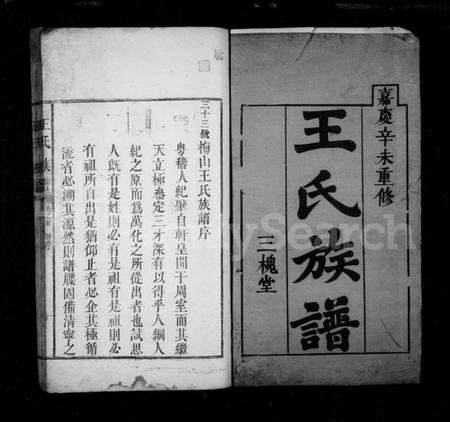 嘉慶辛未重修
王氏族譜
三槐堂
三十三號梅山王氏族譜序
粵稽人紀肇自軒皇開于周室而其繼
天立極叅定三才深有以得乎人綱人
紀之原而爲萬化之所從出者也試思
人旣有是姓則必有是祖有是祖則必
有祖所自出是猶仰止者必企其極循
流者必溯其源然則譜牒固備淸寧之
王氏族
序